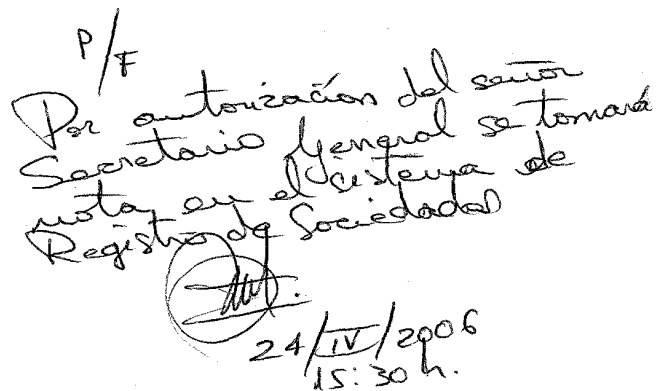 P/F
Por autorización del señor
Secretario General se tomará
nota, en el sistema de
Registro de Sociedades
24/IV/2006
15:30 h.